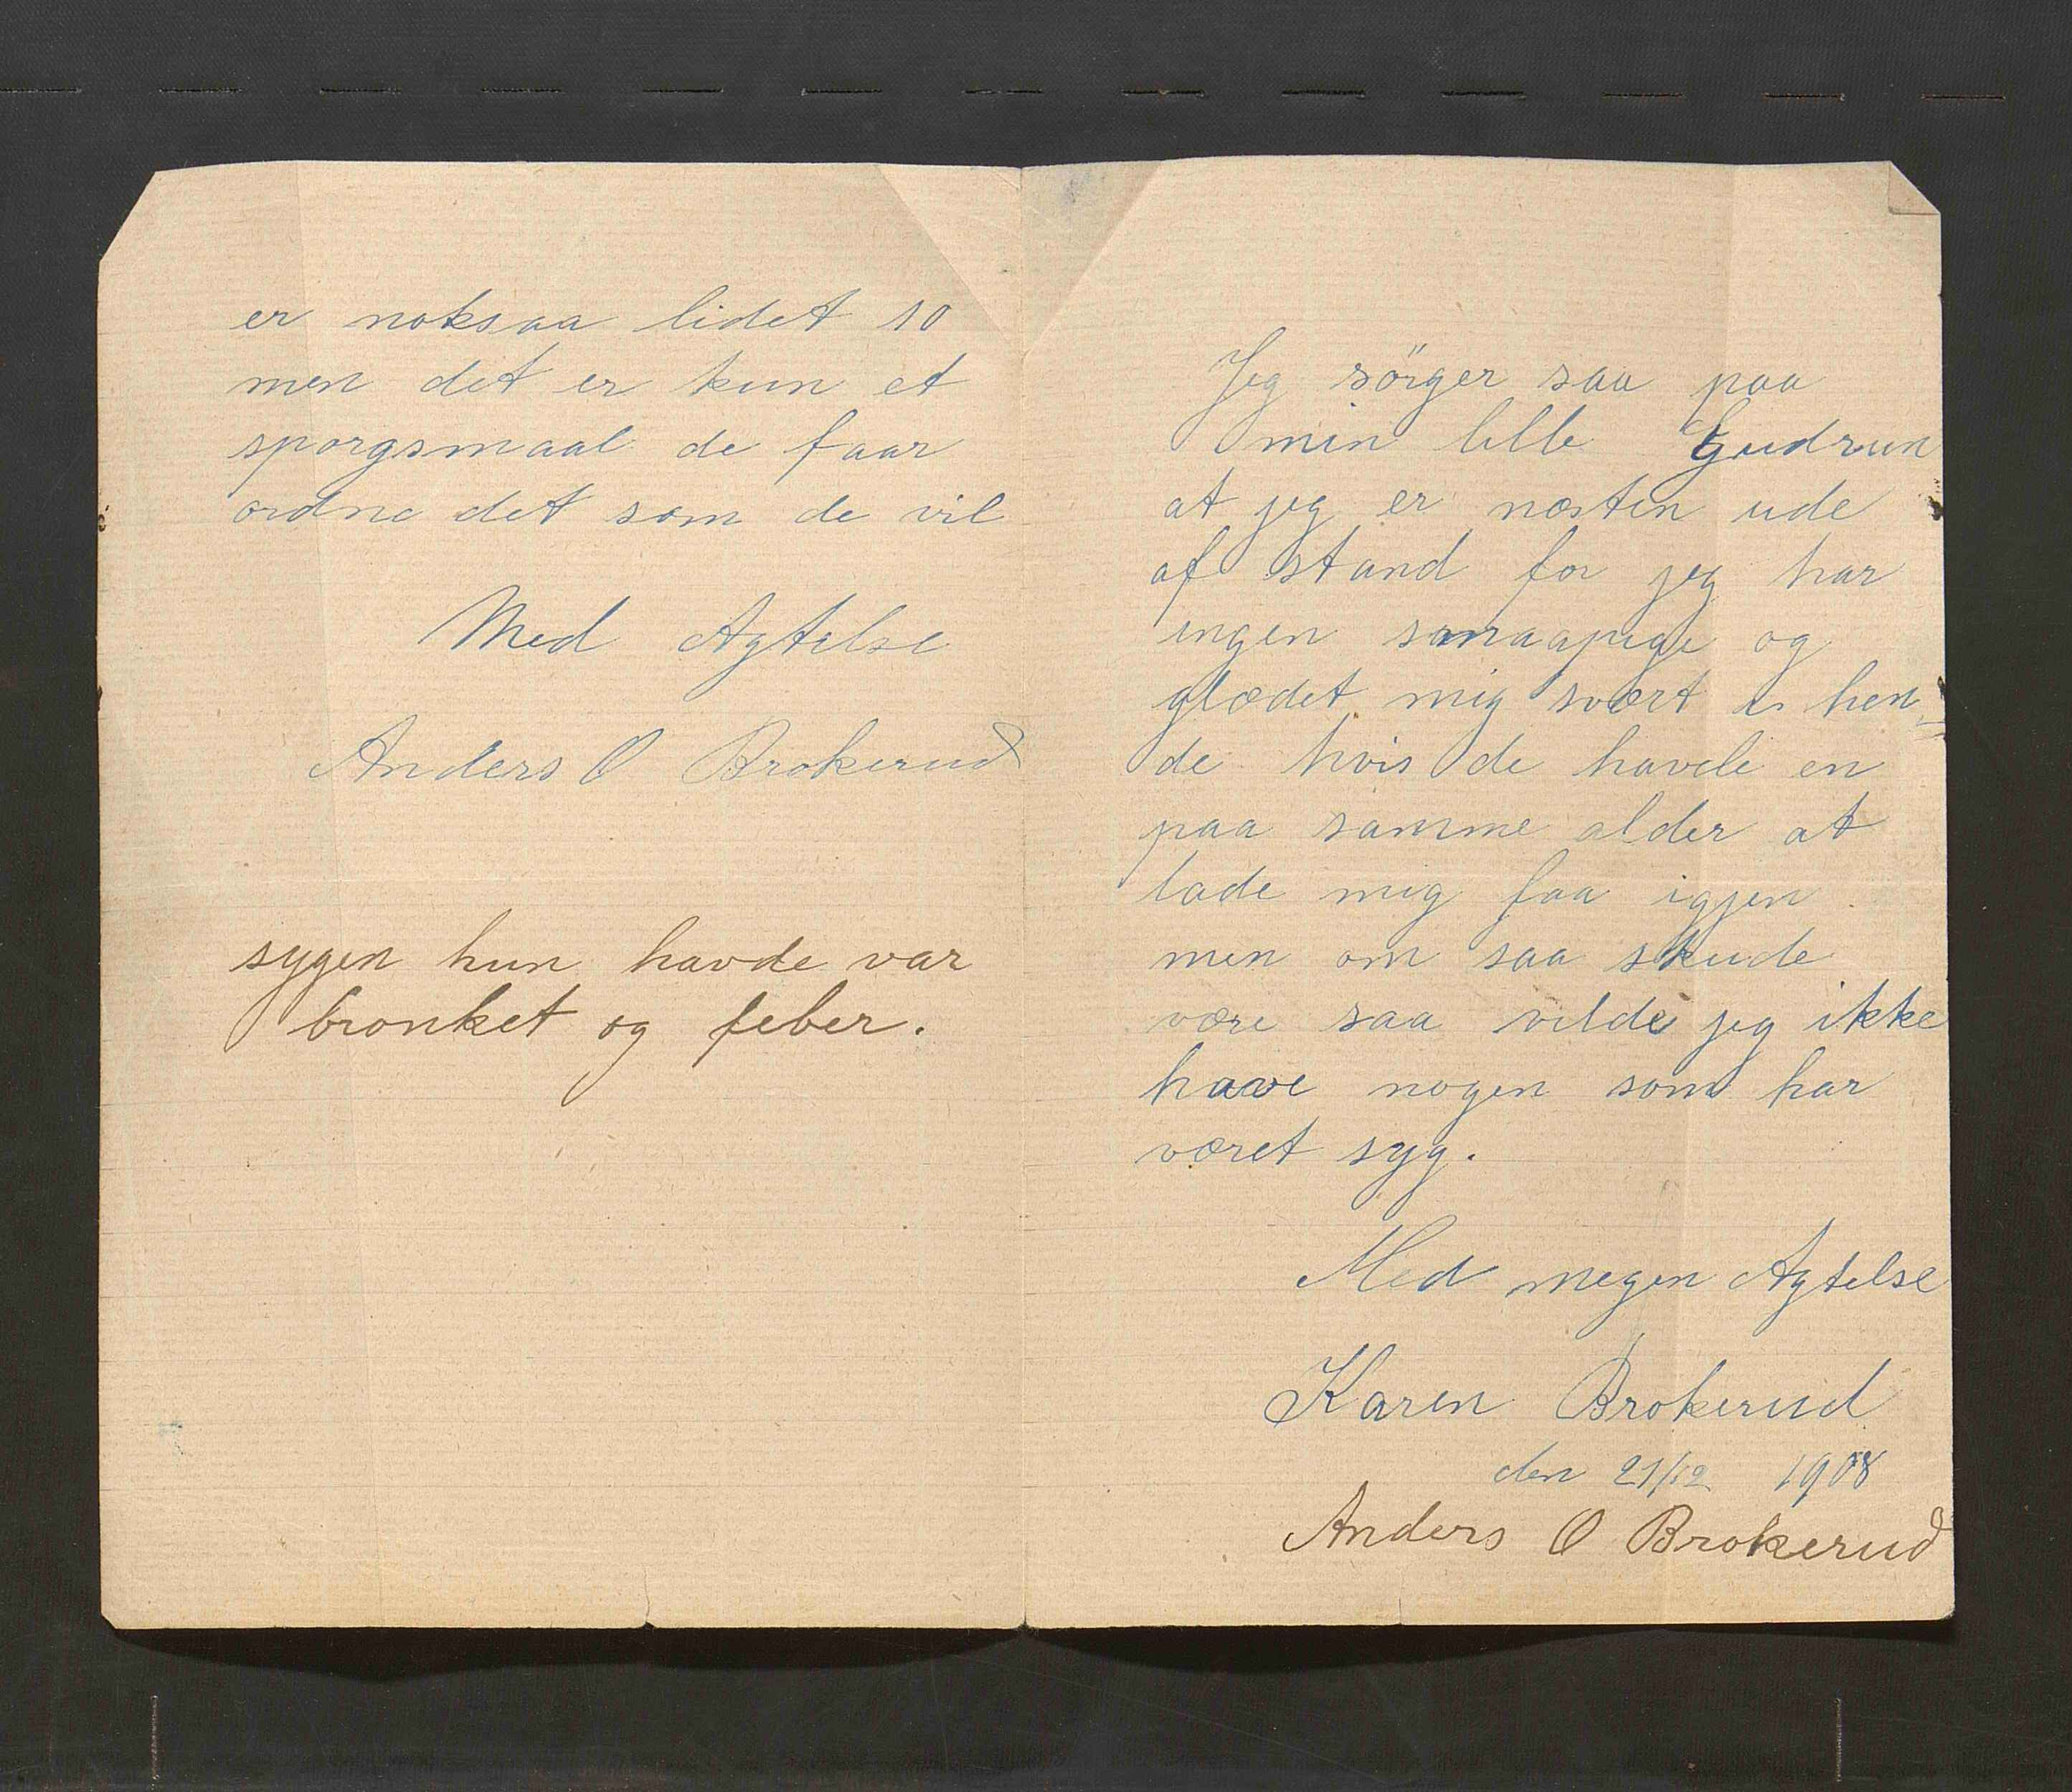 er noksaa lidet 10
men det er kun et
sporgsmaal de faar
ordne det som de vil
Med Agtelse
Anders O Brokerud
sygen hun havde var
bronket og feber.
Jeg sörger saa paa
min lille Gudrun
at jeg er næsten ude
af stand for jeg har
ingen smaapige og
glædet mig svært i hen=
de hvis de havde en
paa samme alder at
lade mig faa igjen
men om saa skude
være saa vilde jeg ikke
have nogen som har
været syg.
Med megen Agtelse
Karen Brokerud
den 21/12 1908
Anders O Brokerud